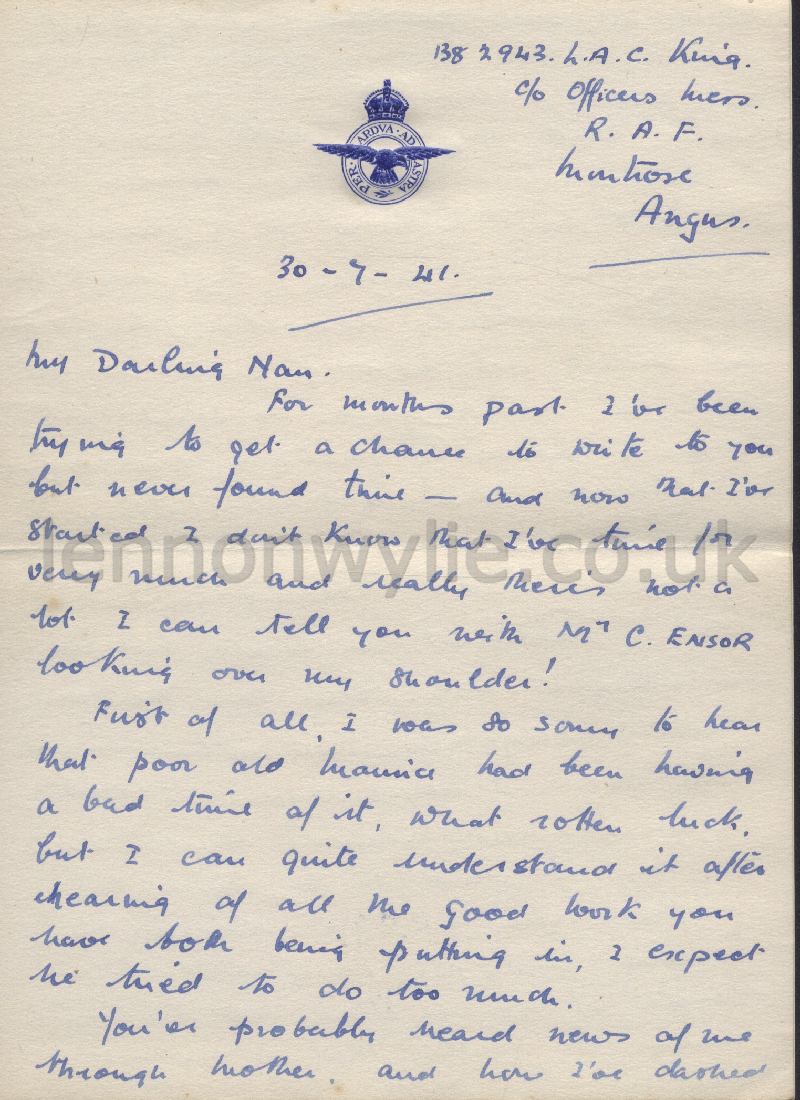 1382943. L.A.C. King.
c/o Officers Mess.
R. A. F.
Montrose
Angus.
PER · ARDVA · AD · ASTRA
30 - 7 - 41.
My Darling Nan.
For months past I've been
trying to get a chance to write to you
but never found time — and now that I've
started I don't know that I've time for
very much and really there's not a
lot I can tell you with Mr C. ENSOR
looking over my shoulder!
First of all, I was so sorry to hear
that poor old Maurice had been having
a bad time of it, what rotten luck,
but I can quite understand it after
hearing of all the good work you
have both being putting in, I expect
he tried to do too much.
You've probably heard news of me
through Mother, and how I've dashed
lennonwylie.co.uk